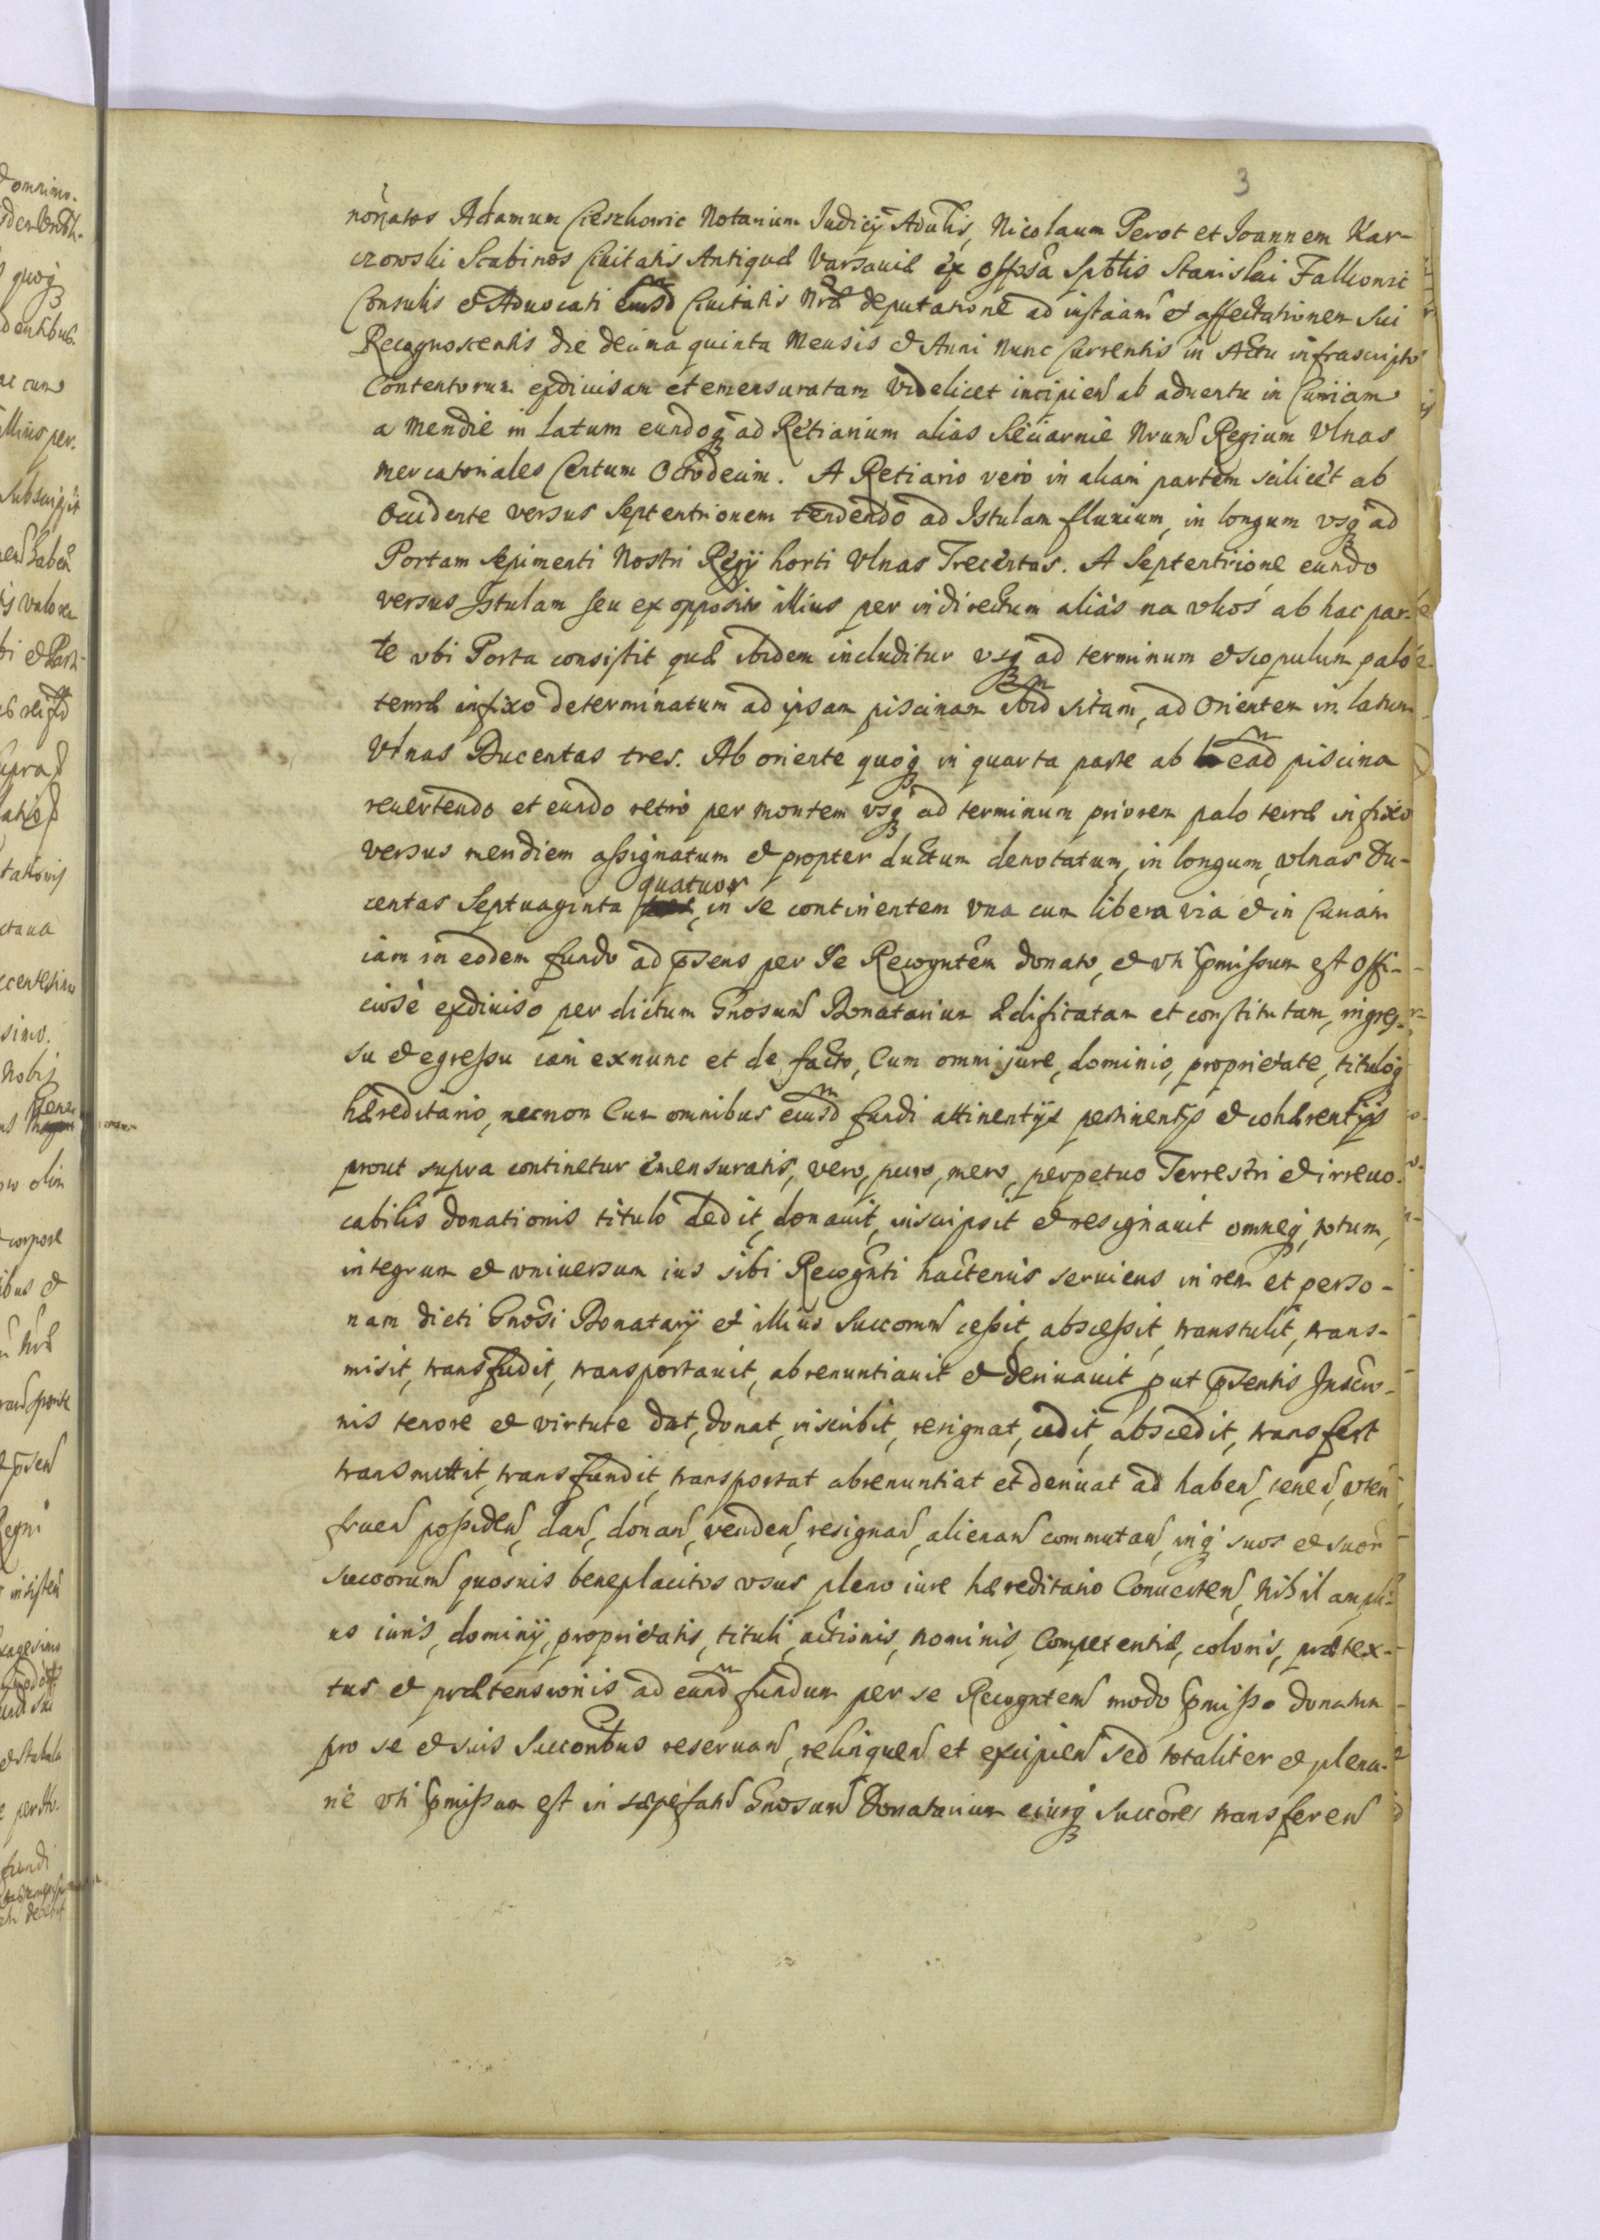 3
noratos Adamum Cieszkowic Notarium Judicij Advlis, Nicolaum Perot et Joannem Kar-
czowski Scabinos Civitatis Antiquæ Varsaviæ ex offosa Spblis Stanislai Falkowic
Consulis et Advocati eiusd Civitatis Nræ deputatione ad instaam et affectationem sui
Recognoscentis die decima quinta Mensis et Anni Nunc Currentis in Actu infrascripto
Contentorum exdivisam et emensuratam videlicet incipien ab adventu in Curiam
a meridie in latum eundoq ad Retiarium alias Sieciarnie Nrum Regium Vlnas
mercatoriales Centum Octodecim. A Retiario vero in aliam partem scilicet ab
Occidente versus Septentrionem tendendo ad Istulam fluvium, in longum vsq ad
Portam sepimenti Nostri Regij horti Vlnas Trecentas. A Septentrione eundo
versus Istulam seu ex opposito illius per indirectum aliàs na vkos ab hac par-
te vbi Porta consistit quæ ibidem includitur vsq ad terminum et scopulum palo
terræ infixo determinatum ad ipsam piscinam ibid sitam, ad Orientem in latum
Vlnas Ducentas tres. Ab oriente quoq in quarta parte ab ead piscina
revertendo et eundo retro per montem vsq ad terminum priorem palo terræ infixo
versus meridiem assignatum et propter ductum denotatum, in longum, vlnas Du-
centas Septuaginta quatuor, in se continentem vna cum libera via et in Curiam
iam in eodem fundo ad psens per Se Recogntem donato, et vti pmissum est offi-
ciose exdiviso per dictum Gnosum Donatarium ædificatam et constitutam, ingres-
su et egressu iam exnunc et de facto, Cum omni jure, dominio, proprietate, tituloq
hæreditario, necnon Cum omnibus eiusd fundi attinentijs pertinentijs et cohærentijs
prout supra continetur emensuratis, vero, puro, mero, perpetuo Terrestri et irrevo-
cabilis donationis titulo dedit, donavit, inscripsit et resignavit omneq, totum,
integrum et vniversum ius sibi Recognti hactenus serviens in rem et perso-
nam dicti Gnosi Donatarij et illius Succorum cessit, abscessit, transtulit, trans-
misit, transfudit, transportavit, abrenuntiavit et derivavit put psentis Inscro-
nis tenore et virtute dat, donat, inscribit, resignat, cedit, abscedit, transfert
transmittit, transfundit, transportat abrenuntiat et derivat ad haben, tenen, vten
fruen possiden, dan, donan, venden, resignan, alienan commutan, inq suos et suor
succorum quosvis beneplacitos vsus pleno iure hæreditario Converten, Nihil ampli-
us iuris, dominij, proprietatis, tituli, actionis, nominis, Competentiæ, coloris, prætex-
tus et prætensionis ad eund fundum per se Recognten modo pmisso donatum
pro se et suis Succoribus reservan, relinquen et excipien sed totaliter et plena-
rie vti pmissum est in sæpefatu Gnosum Donatarium eiusq Succores transferen